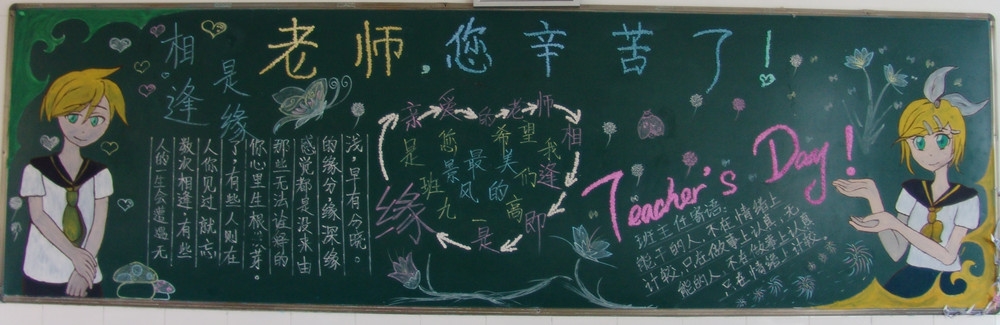 相逢
是缘
老师,您辛苦了!
人的一生会遭遇无
数次相逢,有些
人你见过就忘
了,有些人则在
你心里生根、发芽。
那些无法诠释的
感觉都是没来由
的缘分,缘深缘
浅,早有分晓。
亲爱的老师相逢即是缘
希望我们是您最美的风景
高一九班
Teacher's Day!
班主任寄语:
能干的人,不在情绪上
计较,只在做事上认真;无
能的人,不在做事上认真
只在情绪上计较。